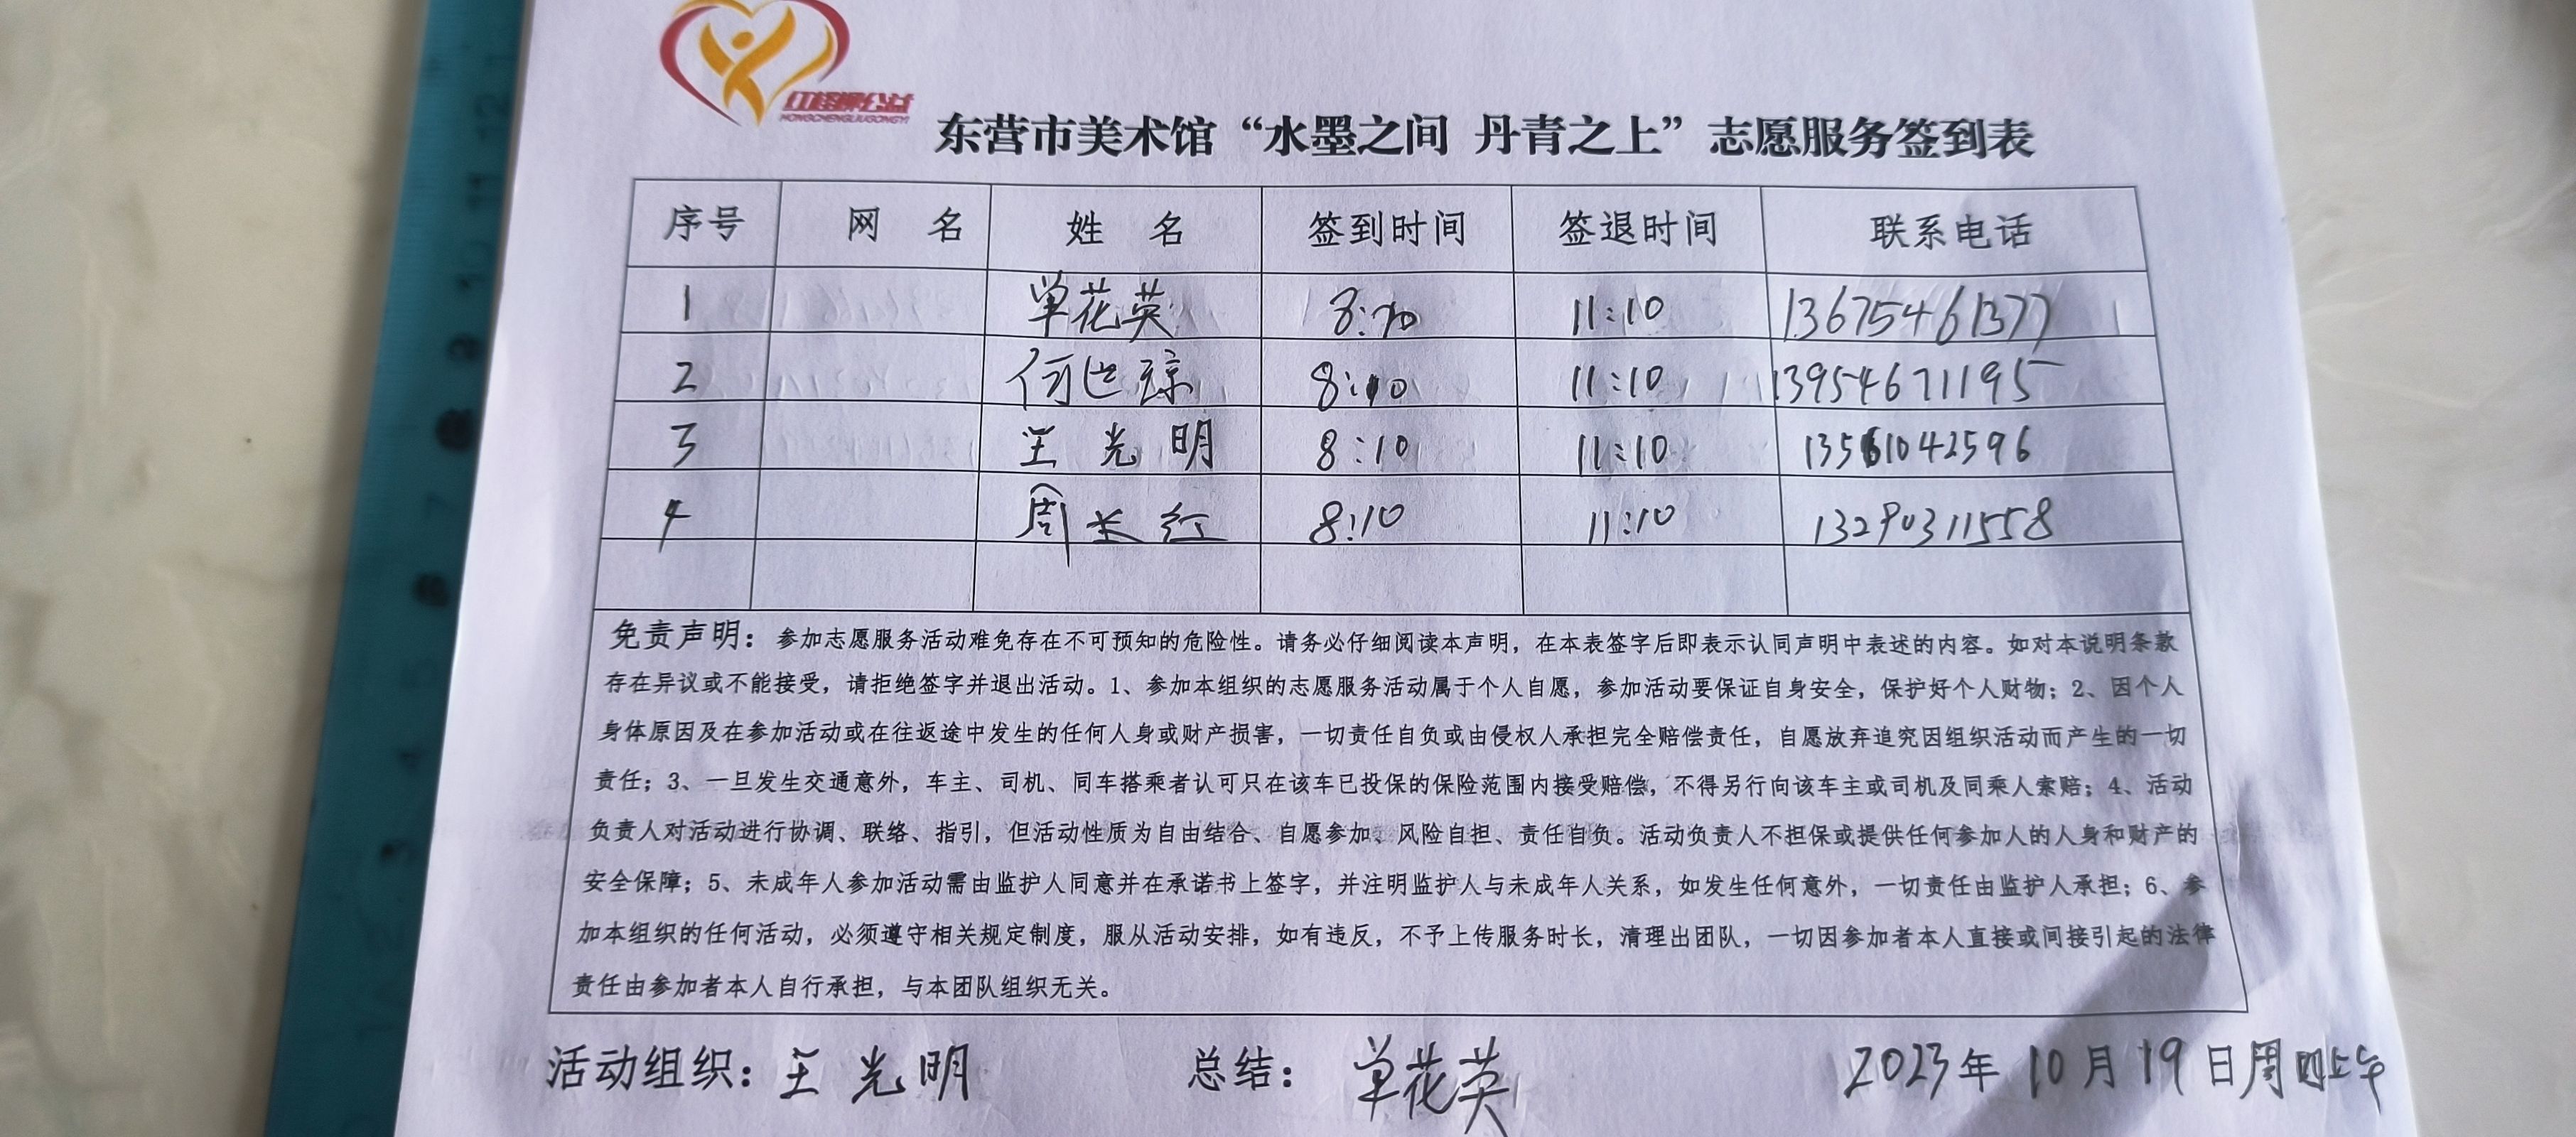 红柽柳公益
HONGCHENGLIUGONGYI
东营市美术馆“水墨之间 丹青之上”志愿服务签到表
序号 网 名 姓 名 签到时间 签退时间 联系电话
1 单花英 8:10 11:10 13675461377
2 何 琼 8:10 11:10 13954671195
3 王光明 8:10 11:10 13561042596
4 周长红 8:10 11:10 13290311558
免责声明：参加志愿服务活动难免存在不可预知的危险性。请务必仔细阅读本声明，在本表签字后即表示认同声明中表述的内容。如对本说明条款
存在异议或不能接受，请拒绝签字并退出活动。1、参加本组织的志愿服务活动属于个人自愿，参加活动要保证自身安全，保护好个人财物；2、因个人
身体原因及在参加活动或在往返途中发生的任何人身或财产损害，一切责任自负或由侵权人承担完全赔偿责任，自愿放弃追究因组织活动而产生的一切
责任；3、一旦发生交通意外，车主、司机、同车搭乘者认可只在该车已投保的保险范围内接受赔偿，不得另行向该车主或司机及同乘人索赔；4、活动
负责人对活动进行协调、联络、指引，但活动性质为自由结合、自愿参加、风险自担、责任自负。活动负责人不担保或提供任何参加人的人身和财产的
安全保障；5、未成年人参加活动需由监护人同意并在承诺书上签字，并注明监护人与未成年人关系，如发生任何意外，一切责任由监护人承担；6、参
加本组织的任何活动，必须遵守相关规定制度，服从活动安排，如有违反，不予上传服务时长，清理出团队，一切因参加者本人直接或间接引起的法律
责任由参加者本人自行承担，与本团队组织无关。
活动组织：王光明 总结：单花英 2023年10月19日周四上午